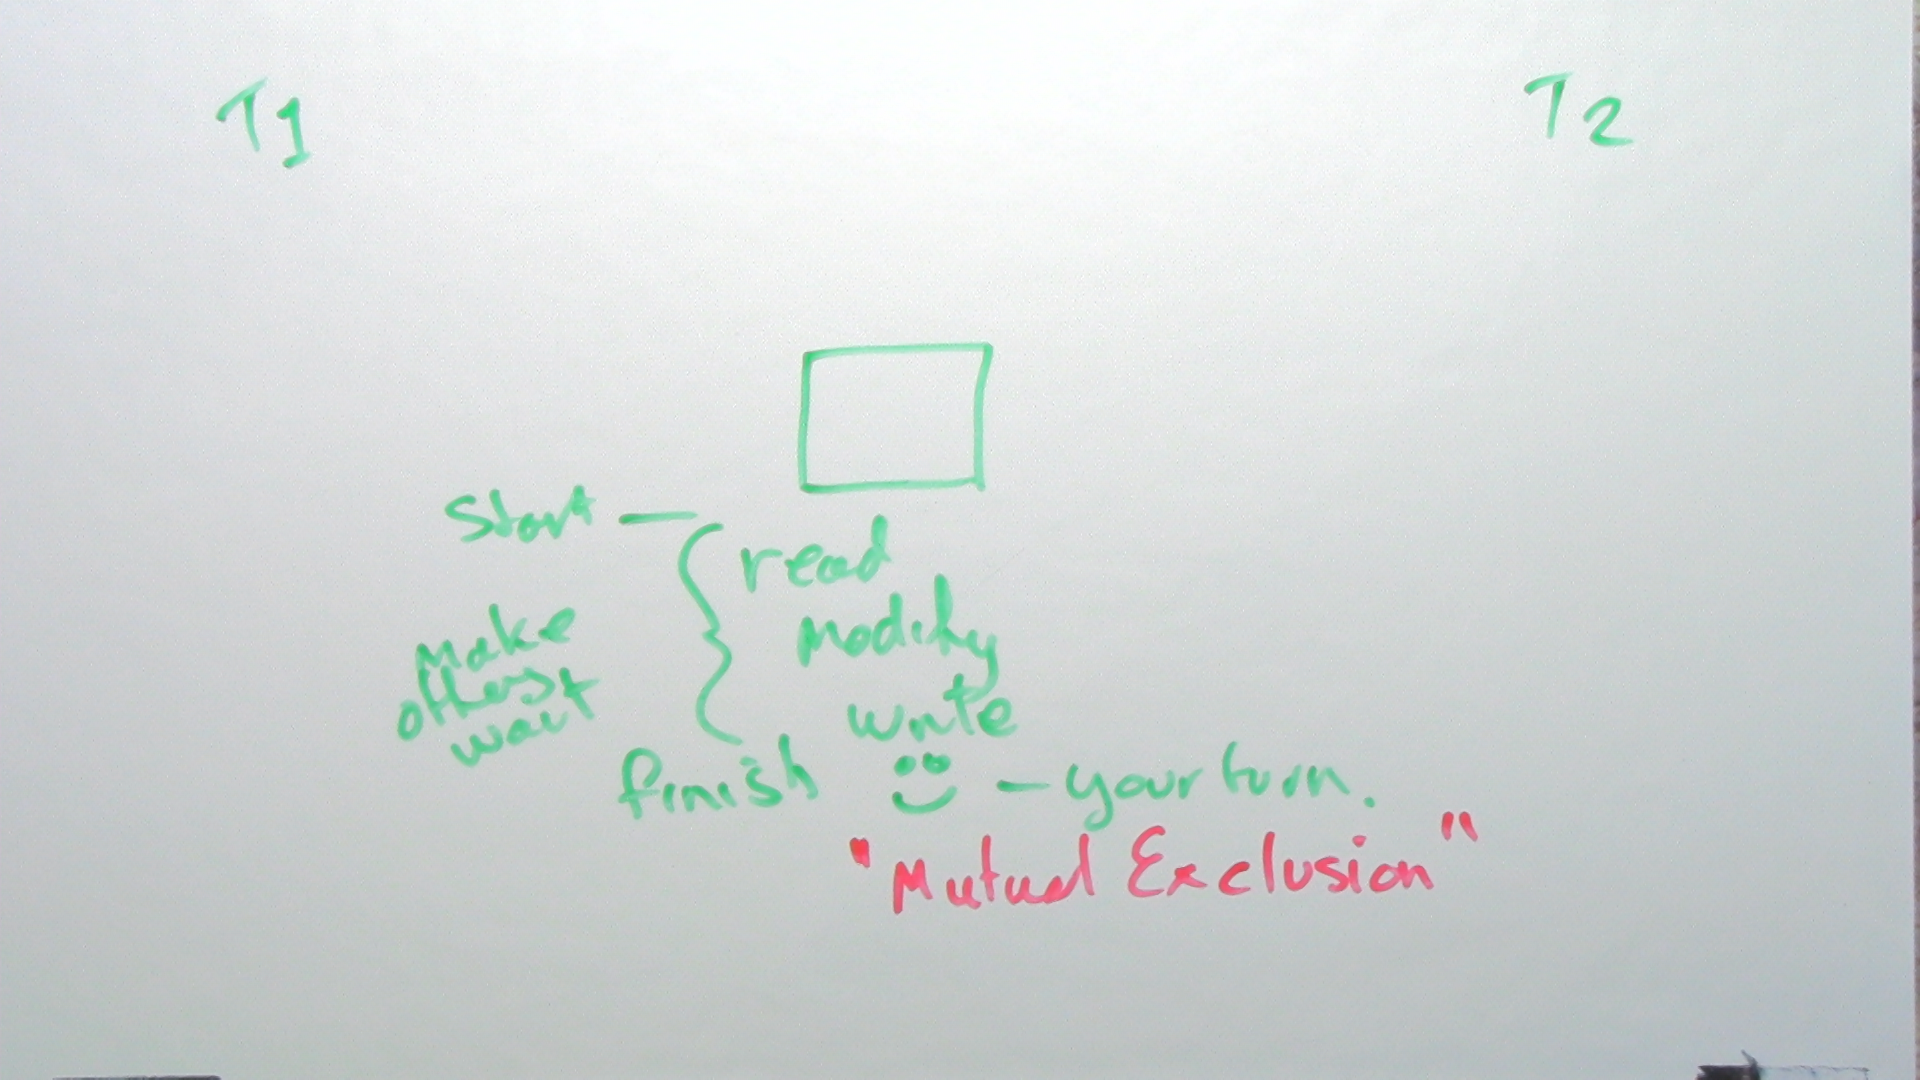 T1
T2
Start —
read
modify
write
Make
others
wait
finish — your turn.
"Mutual Exclusion"